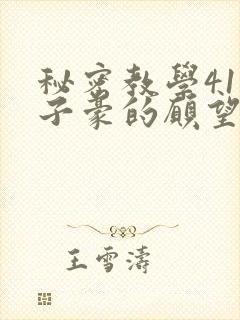 秘密教學41
子豪的願望
王雪濤